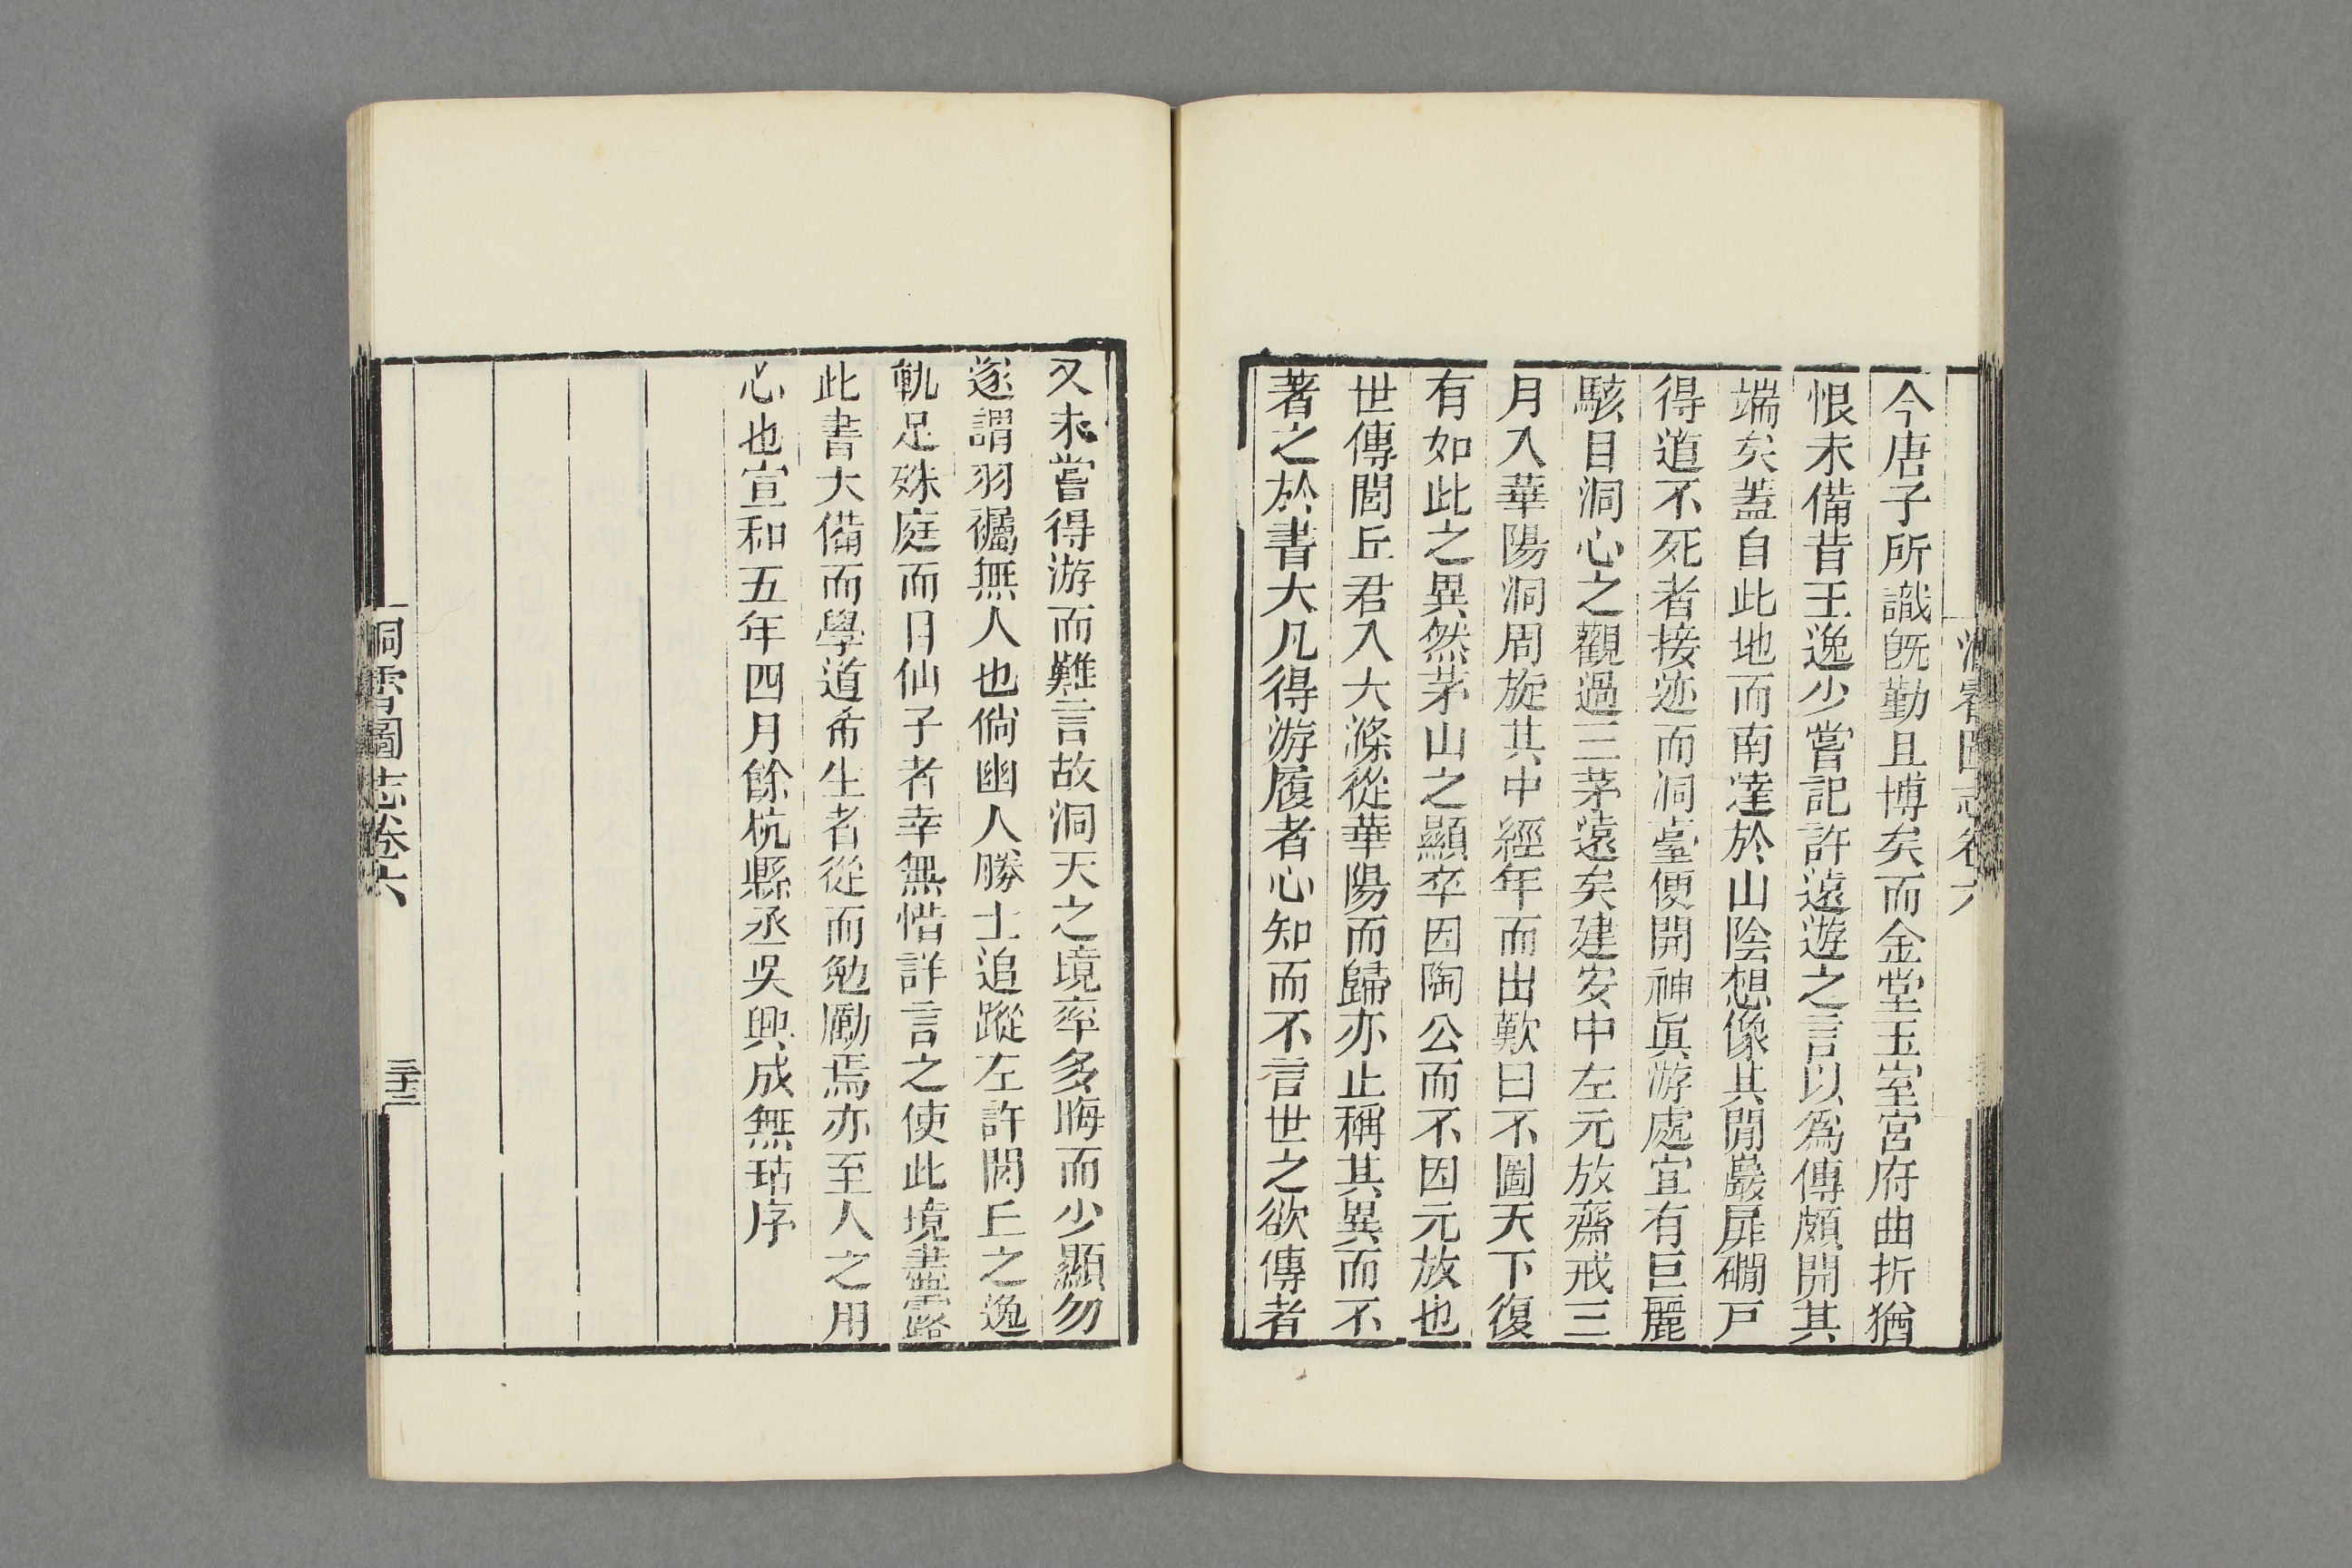 今唐子所識旣勤且博矣而金堂玉室宮府曲折猶
恨未備昔王逸少嘗記許遠遊之言以爲傳頗開其
端矣蓋自此地而南達於山陰想像其閒巖扉磵戸
得道不死者接迹而洞臺便開神眞游處宜有巨麗
駭目洞心之觀過三茅遠矣建安中左元放齋戒三
月入華陽洞周旋其中經年而出歎曰不圖天下復
有如此之異然茅山之顯卒因陶公而不因元放也
世傳閭丘君入大滌從華陽而歸亦止稱其異而不
著之於書大凡得游履者心知而不言世之欲傳者
又未嘗得游而難言故洞天之境率多晦而少顯勿
遂謂羽襹無人也倘幽人勝士追蹤左許閭丘之逸
軌足殊庭而目仙子者幸無惜詳言之使此境盡露
此書大備而學道希生者從而勉勵焉亦至人之用
心也宣和五年四月餘杭縣丞吳興成無玷序
洞霄圖志卷六